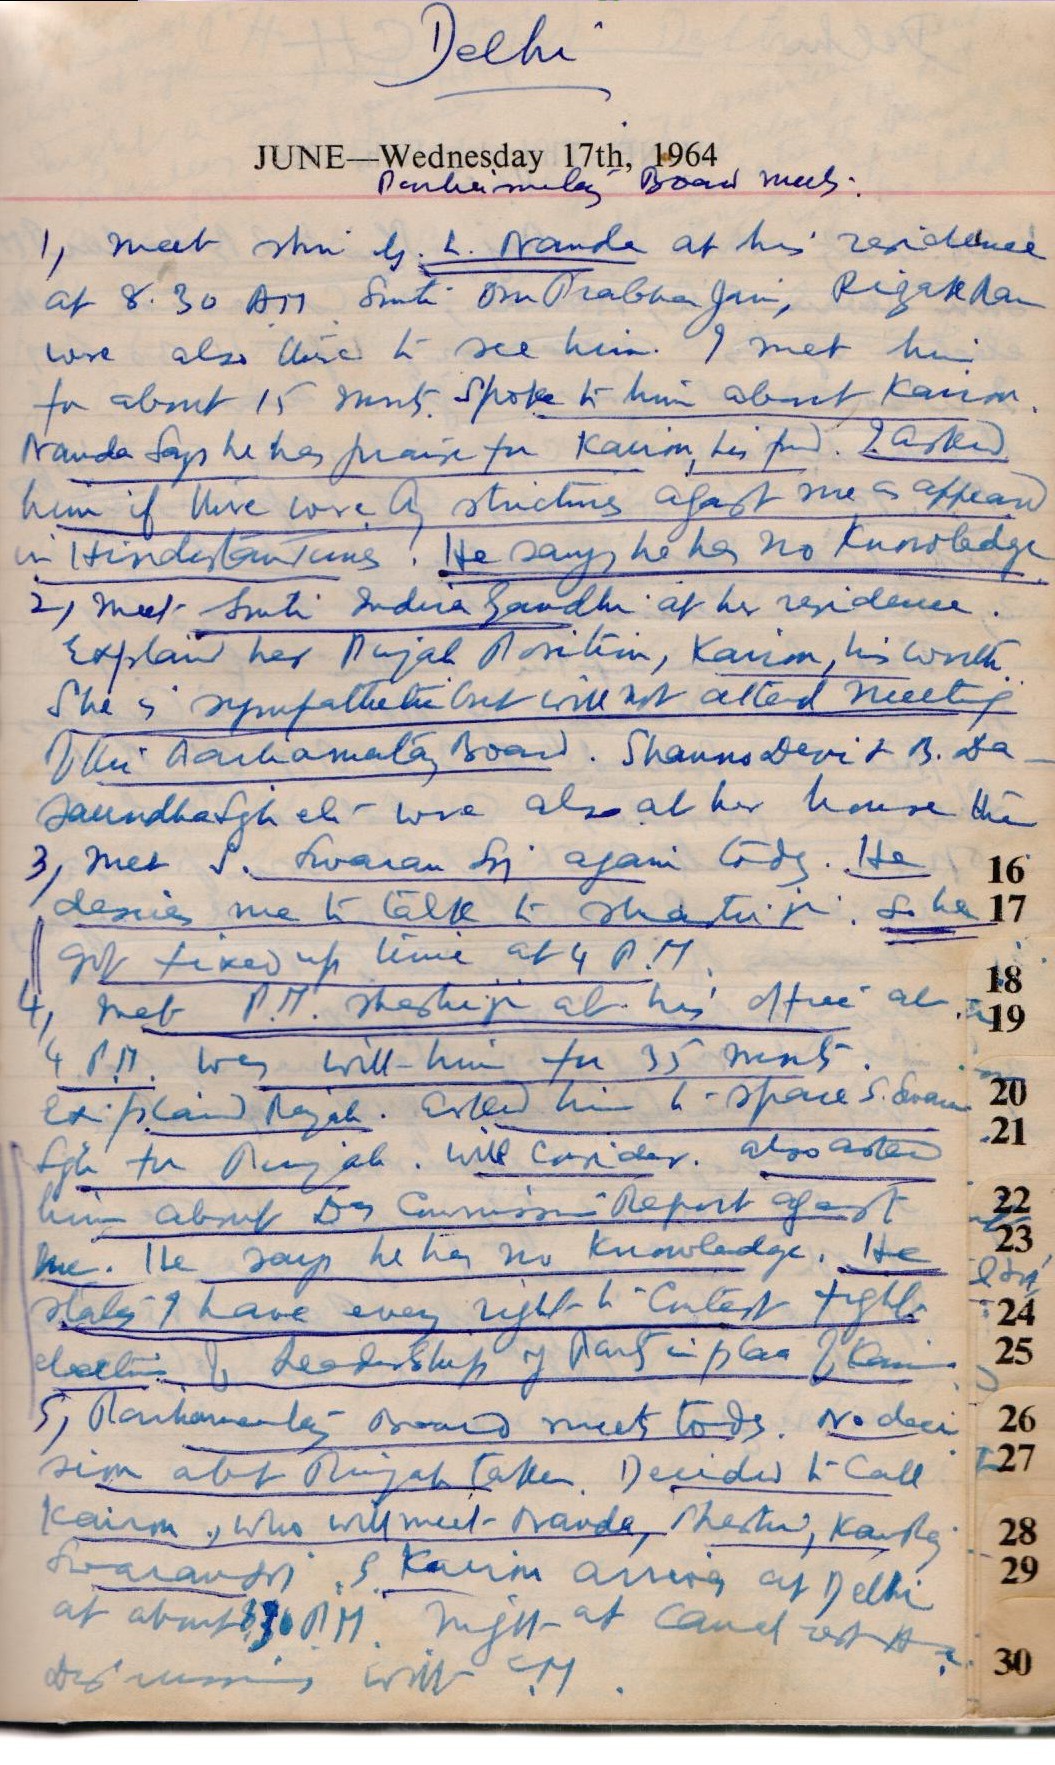 Delhi
JUNE—Wednesday 17th, 1964
Parliamentary Board meets.
1, Meet Shri G. L. Nanda at his residence
at 8.30 AM Smti Om Prabha Jain, Rizak Ram
were also there to see him. I met him
for about 15 mnts. Spoke to him about Kairon.
Nanda says he has praise for Kairon, his fnd. I asked
him if there were any strictures agast me as appeard
in Hindustan Times. He says he has no knowledge
2, Meet Smti Indira Gandhi at her residence.
Explaind her Punjab Position, Kairon, his worth.
She is sympathetic but will not attend meeting
of the Parliamentary Board. Shanno Devi & B. Da-
saundha Sgh etc were also at her house
3, Met S. Swaran Sgh again tody. He
desires me to talk to Shastriji. So he
got fixed up time at 4 P.M.
4, Met P.M. Shastriji at his office at
4 P.M. Was with him for 35 mnts.
Explaind Punjab. Asked him to spare S. Swaran
Sgh for Punjab. Will consider. Also asked
him about Das Commission Report agast
me. He says he has no knowledge. He
states I have every right to contest fight
election of Leadership of Party in place of Kairon.
5, Parliamentary Board meets tody. No deci
sion abt Punjab taken. Decided to call
Kairon, who will meet Nanda, Shastri, Kamraj
Swaran Sgh. S. Kairon arrives at Delhi
at about P.M. Night at Canal rest
Discussions with CM.
16
17
18
19
20
21
22
23
24
25
26
27
28
29
30